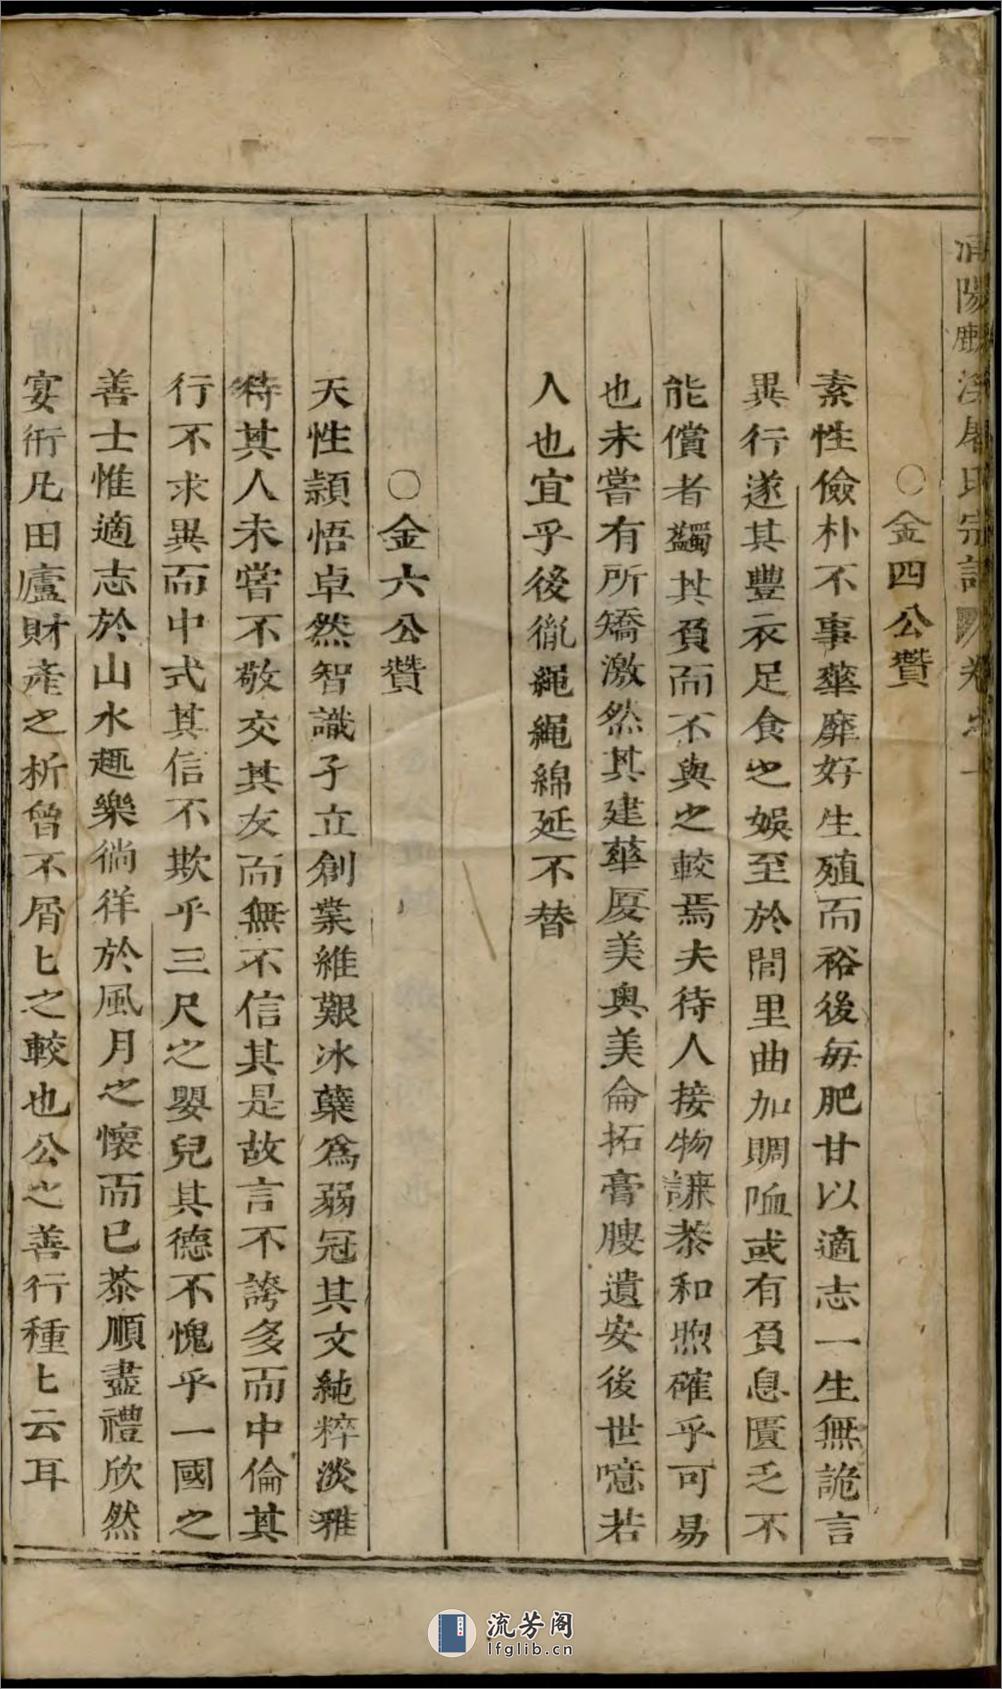 清陽𪋤溪屠氏宗譜 卷之一
○金四公贊
素性儉朴不事華靡好生殖而裕後每肥甘以適志一生無詭言
異行遂其豐衣足食之娛至於閭里曲加賙恤或有負息匱乏不
能償者蠲其負而不與之較焉夫待人接物謙恭和煦確乎可易
也未嘗有所矯激然其建華廈美奥美侖拓膏腴遺安後世噫若
人也宜乎後胤繩繩綿延不替
○金六公贊
天性穎悟卓然智識孑立創業維艱冰蘖爲弱冠其文純粹淡雅
待其人未嘗不敬交其友而無不信其是故言不誇多而中倫其
行不求異而中式其信不欺乎三尺之嬰兒其德不愧乎一國之
善士惟適志於山水趣樂徜徉於風月之懷而已恭順盡禮欣然
宴衎凡田廬財產之析曾不屑匕之較也公之善行種匕云耳
流芳阁
lfglib.cn